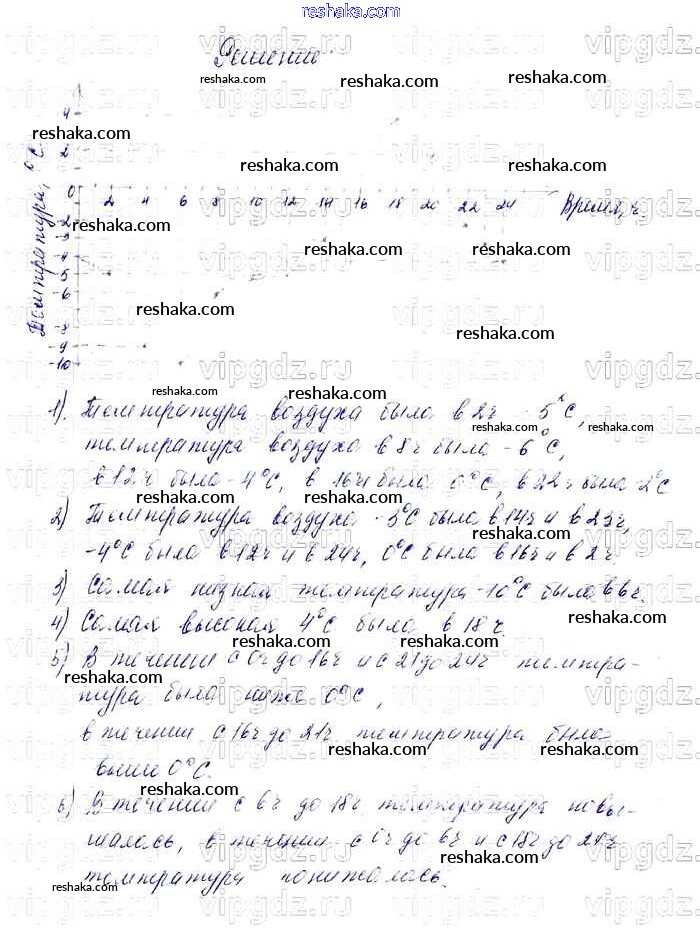 reshaka.com
Решение:
Температура, °С
4
2
0
2 4 6 8 10 12 14 16 18 20 22 24 Время, ч.
-2
-3
-4
-5
-6
-8
-9
-10
1). Температура воздуха была в 2ч -5°С,
температура воздуха в 8ч была -6°С,
в 12ч была -4°С, в 16ч была 0°С, в 22ч была -2°С
2) Температура воздуха -3°С была в 14ч и в 23ч,
-4°С была в 12ч и в 24ч, 0°С была в 16ч и в 2 ч.
3) Самая низкая температура -10°С была в 6ч.
4) Самая высокая 4°С была в 18 ч.
5) В течении с 0ч до 16ч и с 21 до 24ч темпера-
тура была ниже 0°С,
в течении с 16ч до 21ч температура была
выше 0°С.
6) В течении с 6ч до 18ч температура повы-
шалась, в течении с 0ч до 6ч и с 18ч до 24ч
температура понижалась.